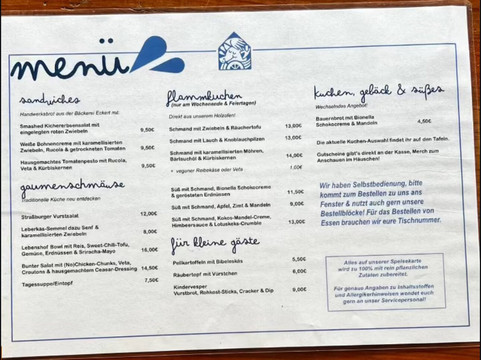 menü
sandwiches
Handwerksbrot von der Bäckerei Eckert mit:
Smashed Kichererbsensalat mit
eingelegten roten Zwiebeln 9,50€
Weiße Bohnencreme mit karamellisierten
Zwiebeln, Rucola & getrockneten Tomaten 9,50€
Hausgemachtes Tomatenpesto mit Rucola,
Veta & Kürbiskernen 9,50€
gaumenschmäuse
Traditionelle Küche neu entdecken
Straßburger Vurstsalat 12,00€
Leberkäs-Semmel dazu Senf &
karamellisierten Zwiebeln 8,00€
Lebenshof Bowl mit Reis, Sweet-Chili-Tofu,
Gemüse, Erdnüssen & Sriracha-Mayo 16,00€
Bunter Salat mit (No)Chicken-Chunks, Veta,
Croutons & hausgemachtem Ceasar-Dressing 14,50€
Tagessuppe/Eintopf 7,50€
flammkuchen
(nur am Wochenende & Feiertagen)
Direkt aus unserem Holzofen!
Schmand mit Zwiebeln & Räuchertofu 13,00€
Schmand mit Lauch & Knoblauchpilzen 13,00€
Schmand mit karamellisierten Möhren,
Bärlauchöl & Kürbiskernen 14,00€
+ veganer Reibekäse oder Veta 1,00€
Süß mit Schmand, Bionella Schokocreme
& gerösteten Erdnüssen 11,50€
Süß mit Schmand, Apfel, Zimt & Mandeln 9,00€
Süß mit Schmand, Kokos-Mandel-Creme,
Himbeersauce & Lotuskeks-Crumble 13,50€
für kleine gäste
Pellkartoffeln mit Bibeleskäs 5,50€
Räubertopf mit Würstchen 6,00€
Kindervesper
Vurstbrot, Rohkost-Sticks, Cracker & Dip 9,00€
kuchen, gebäck & süßes
Wechselndes Angebot!
Bauernbrot mit Bionella
Schokocreme & Mandeln 4,50€
Die aktuelle Kuchen-Auswahl findet ihr auf den Tafeln.
Gutscheine gibt's direkt an der Kasse, Merch zum
Anschauen im Häuschen!
Wir haben Selbstbedienung, bitte
kommt zum Bestellen zu uns ans
Fenster & nutzt auch gern unsere
Bestellblöcke! Für das Bestellen von
Essen brauchen wir eure Tischnummer.
Alles auf unserer Speisekarte
wird zu 100% mit rein pflanzlichen
Zutaten zubereitet.
Für genaue Angaben zu Inhaltsstoffen
und Allergikerhinweisen wendet euch
gern an unser Servicepersonal!